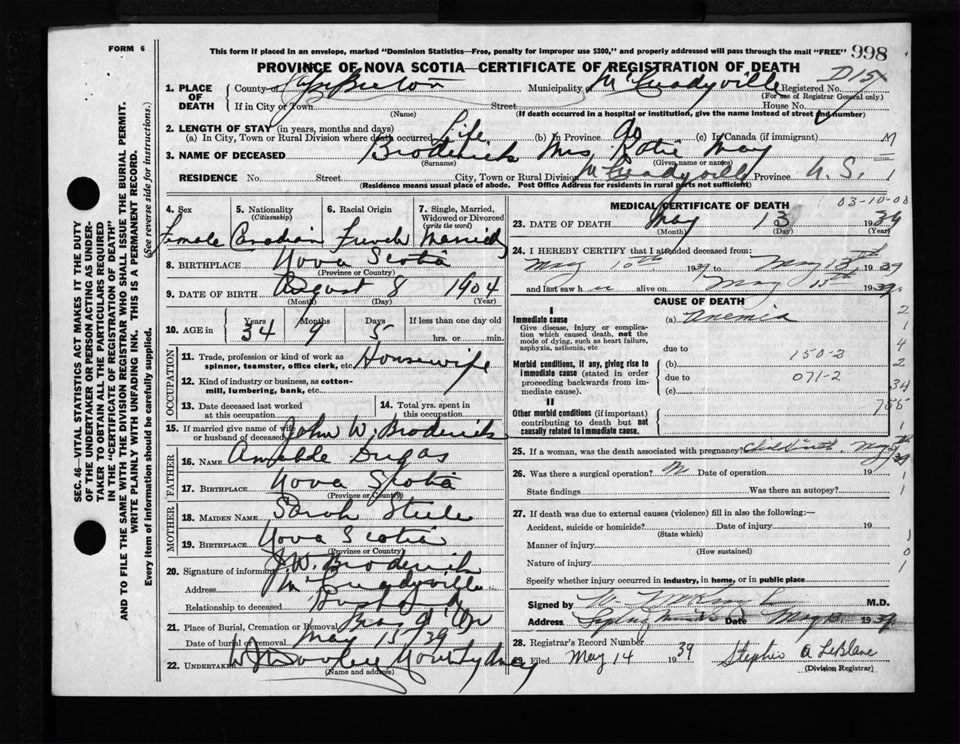 FORM 6
This form if placed in an envelope, marked "Dominion Statistics—Free, penalty for improper use $300," and properly addressed will pass through the mail "FREE" 998
PROVINCE OF NOVA SCOTIA—CERTIFICATE OF REGISTRATION OF DEATH
D15X
1. PLACE OF DEATH County of Cape Breton Municipality of McCreadyville Registered No.
(For use of Registrar General only)
If in City or Town Street House No.
(Name) (If death occurred in a hospital or institution, give the name instead of street and number)
2. LENGTH OF STAY (in years, months and days)
(a) In City, Town or Rural Division where death occurred Life (b) In Province do (c) In Canada (if immigrant) M
3. NAME OF DECEASED Broderick Mrs. Katie May
(Surname) (Given name or names)
RESIDENCE No. Street City, Town or Rural Division McCreadyville Province N. S. 1
(Residence means usual place of abode. Post Office Address for residents in rural parts not sufficient)
4. Sex 5. Nationality (Citizenship) 6. Racial Origin 7. Single, Married, Widowed or Divorced (write the word)
Female Canadian French Married
8. BIRTHPLACE Nova Scotia
(Province or Country)
9. DATE OF BIRTH August 8 1904
(Month) (Day) (Year)
10. AGE in Years Months Days If less than one day old
34 9 5 hrs. or min.
OCCUPATION
11. Trade, profession or kind of work as spinner, teamster, office clerk, etc. Housewife
12. Kind of industry or business, as cotton-mill, lumbering, bank, etc.
13. Date deceased last worked at this occupation
14. Total yrs. spent in this occupation
15. If married give name of wife or husband of deceased John W. Broderick
FATHER
16. NAME Amable Dugas
17. BIRTHPLACE Nova Scotia
(Province or Country)
MOTHER
18. MAIDEN NAME Sarah Steele
19. BIRTHPLACE Nova Scotia
(Province or Country)
20. Signature of informant J. W. Broderick
Address McCreadyville
Relationship to deceased Husband
21. Place of Burial, Cremation or Removal
Date of burial or removal May 15/39
22. UNDERTAKER
(Name and address)
MEDICAL CERTIFICATE OF DEATH
03-10-00
23. DATE OF DEATH May 13 1939
(Month) (Day) (Year)
24. I HEREBY CERTIFY that I attended deceased from:
May 10th 1939 to May 13th 1939
and last saw h er alive on May 1939
CAUSE OF DEATH
I
Immediate cause (a) Anemia
Give disease, injury or complication which caused death, not the mode of dying, such as heart failure, asphyxia, asthenia, etc
due to
Morbid conditions, if any, giving rise to immediate cause (stated in order proceeding backwards from immediate cause).
(b) 150-3
due to 071-2
(c)
II
Other morbid conditions (if important) contributing to death but not causally related to immediate cause.
25. If a woman, was the death associated with pregnancy? Childbirth. May
26. Was there a surgical operation? Date of operation 19
State findings Was there an autopsy?
27. If death was due to external causes (violence) fill in also the following:—
Accident, suicide or homicide? Date of injury 19
(State which)
Manner of injury
(How sustained)
Nature of injury
Specify whether injury occurred in industry, in home, or in public place
Signed by M.D.
Address Sydney Mines Date May 13 1939
28. Registrar's Record Number
29. Filed May 14 1939 Stephen A LeBlanc
(Division Registrar)
SEC. 46—VITAL STATISTICS ACT MAKES IT THE DUTY
OF THE UNDERTAKER OR PERSON ACTING AS UNDERTAKER TO OBTAIN ALL THE PARTICULARS REQUIRED
IN THE "CERTIFICATE OF REGISTRATION OF DEATH"
AND TO FILE THE SAME WITH THE DIVISION REGISTRAR WHO SHALL ISSUE THE BURIAL PERMIT.
WRITE PLAINLY WITH UNFADING INK. THIS IS A PERMANENT RECORD.
Every item of information should be carefully supplied. (See reverse side for instructions.)